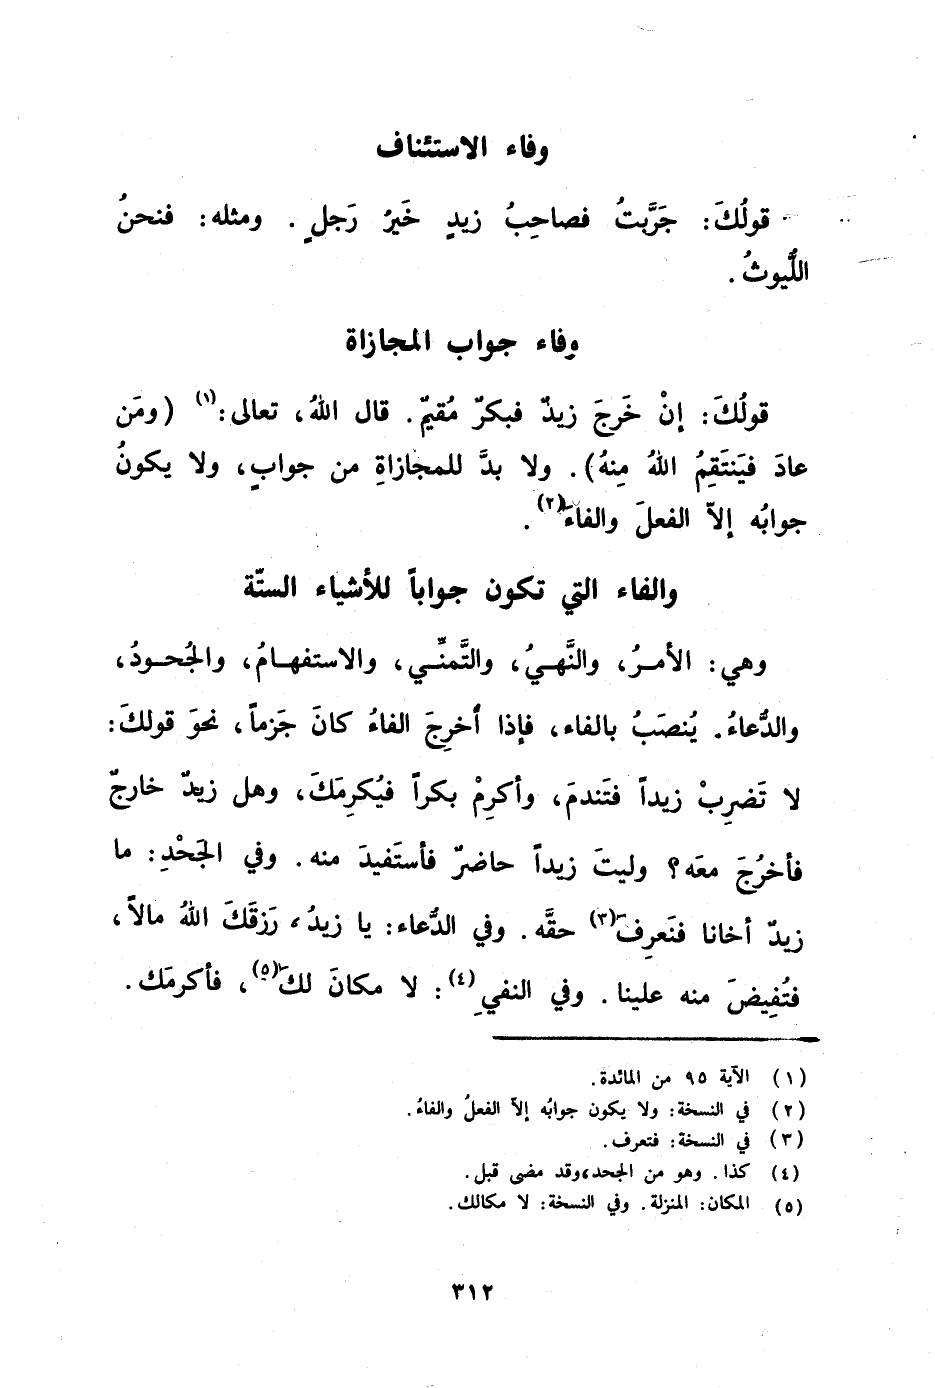 وفاء الاستئناف
قولُكَ: جَرَّبتُ فصاحِبُ زيدٍ خَيرُ رَجلٍ. ومثله: فنحنُ
اللُّيوثُ.
وفاء جواب المجازاة
قولُكَ: إنْ خَرجَ زيدٌ فبكرٌ مُقيمٌ. قال اللهُ، تعالى:(١) (ومَن
عادَ فيَنتَقِمُ اللهُ مِنهُ). ولا بدَّ للمجازاةِ من جوابٍ، ولا يكونُ
جوابُه إلاّ الفعلَ والفاءَ(٢).
والفاء التي تكون جواباً للأشياء الستّة
وهي: الأمـرُ، والنَّهـيُ، والتَّمنِّـي، والاستفهـامُ، والجُحـودُ،
والدُّعاءُ. يُنصَبُ بالفاء، فإذا أخرِجَ الفاءُ كانَ جَزماً، نحوَ قولكَ:
لا تَضرِبْ زيداً فتَندمَ، وأكرِمْ بكراً فيُكرِمَكَ، وهل زيدٌ خارجٌ
فأخرُجَ معَه؟ وليتَ زيداً حاضرٌ فأستَفيدَ منه. وفي الجَحْدِ: ما
زيدٌ أخانا فنَعرِفَ(٣) حقَّه. وفي الدُّعاء: يا زيدُ، رَزقَكَ اللهُ مالاً،
فتُفِيضَ منه علينا. وفي النفيِ(٤): لا مكانَ لكَ(٥)، فأكرمَك.
(١) الآية ٩٥ من المائدة.
(٢) في النسخة: ولا يكون جوابُه إلاّ الفعلُ والفاءُ.
(٣) في النسخة: فتعرف.
(٤) كذا. وهو من الجحد، وقد مضى قبل.
(٥) المكان: المنزلة. وفي النسخة: لا مكالك.
٣١٢